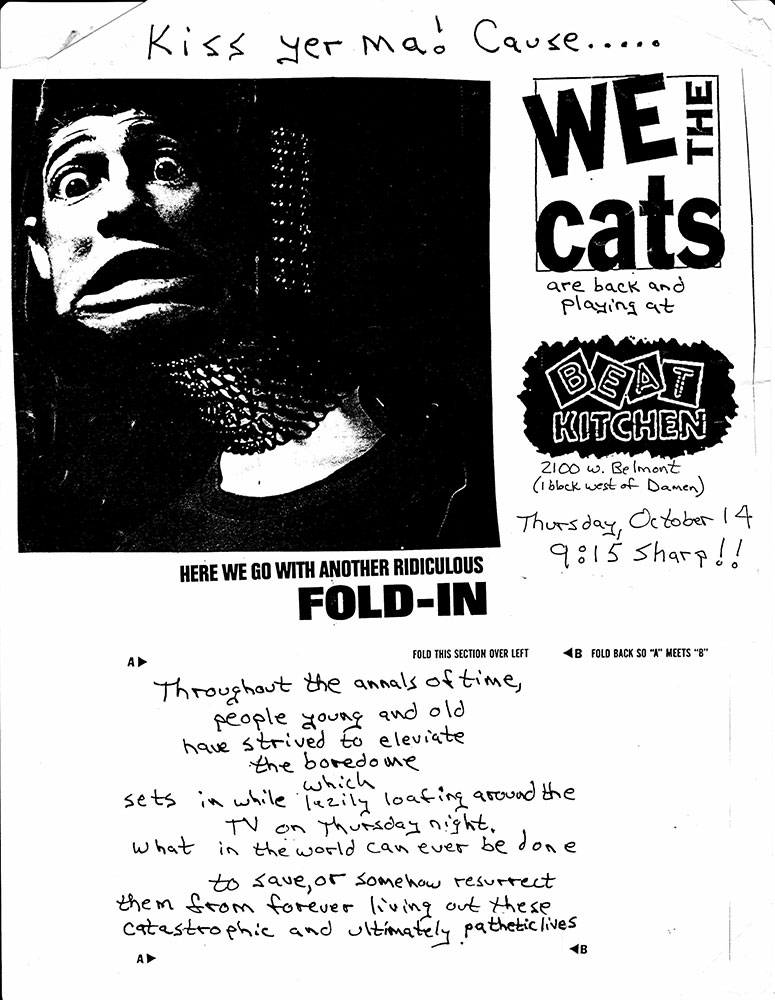 Kiss yer ma! Cause.....
WE THE
cats
are back and
playing at
BEAT
KITCHEN
2100 W. Belmont
(1 block west of Damen)
Thursday, October 14
9:15 Sharp!!
HERE WE GO WITH ANOTHER RIDICULOUS
FOLD-IN
A▶ FOLD THIS SECTION OVER LEFT ◀B FOLD BACK SO "A" MEETS "B"
Throughout the annals of time,
people young and old
have strived to eleviate
the boredome
which
sets in while lazily loafing around the
TV on Thursday night.
What in the world can ever be done
to save, or somehow resurrect
them from forever living out these
catastrophic and ultimately pathetic lives
A▶ ◀B